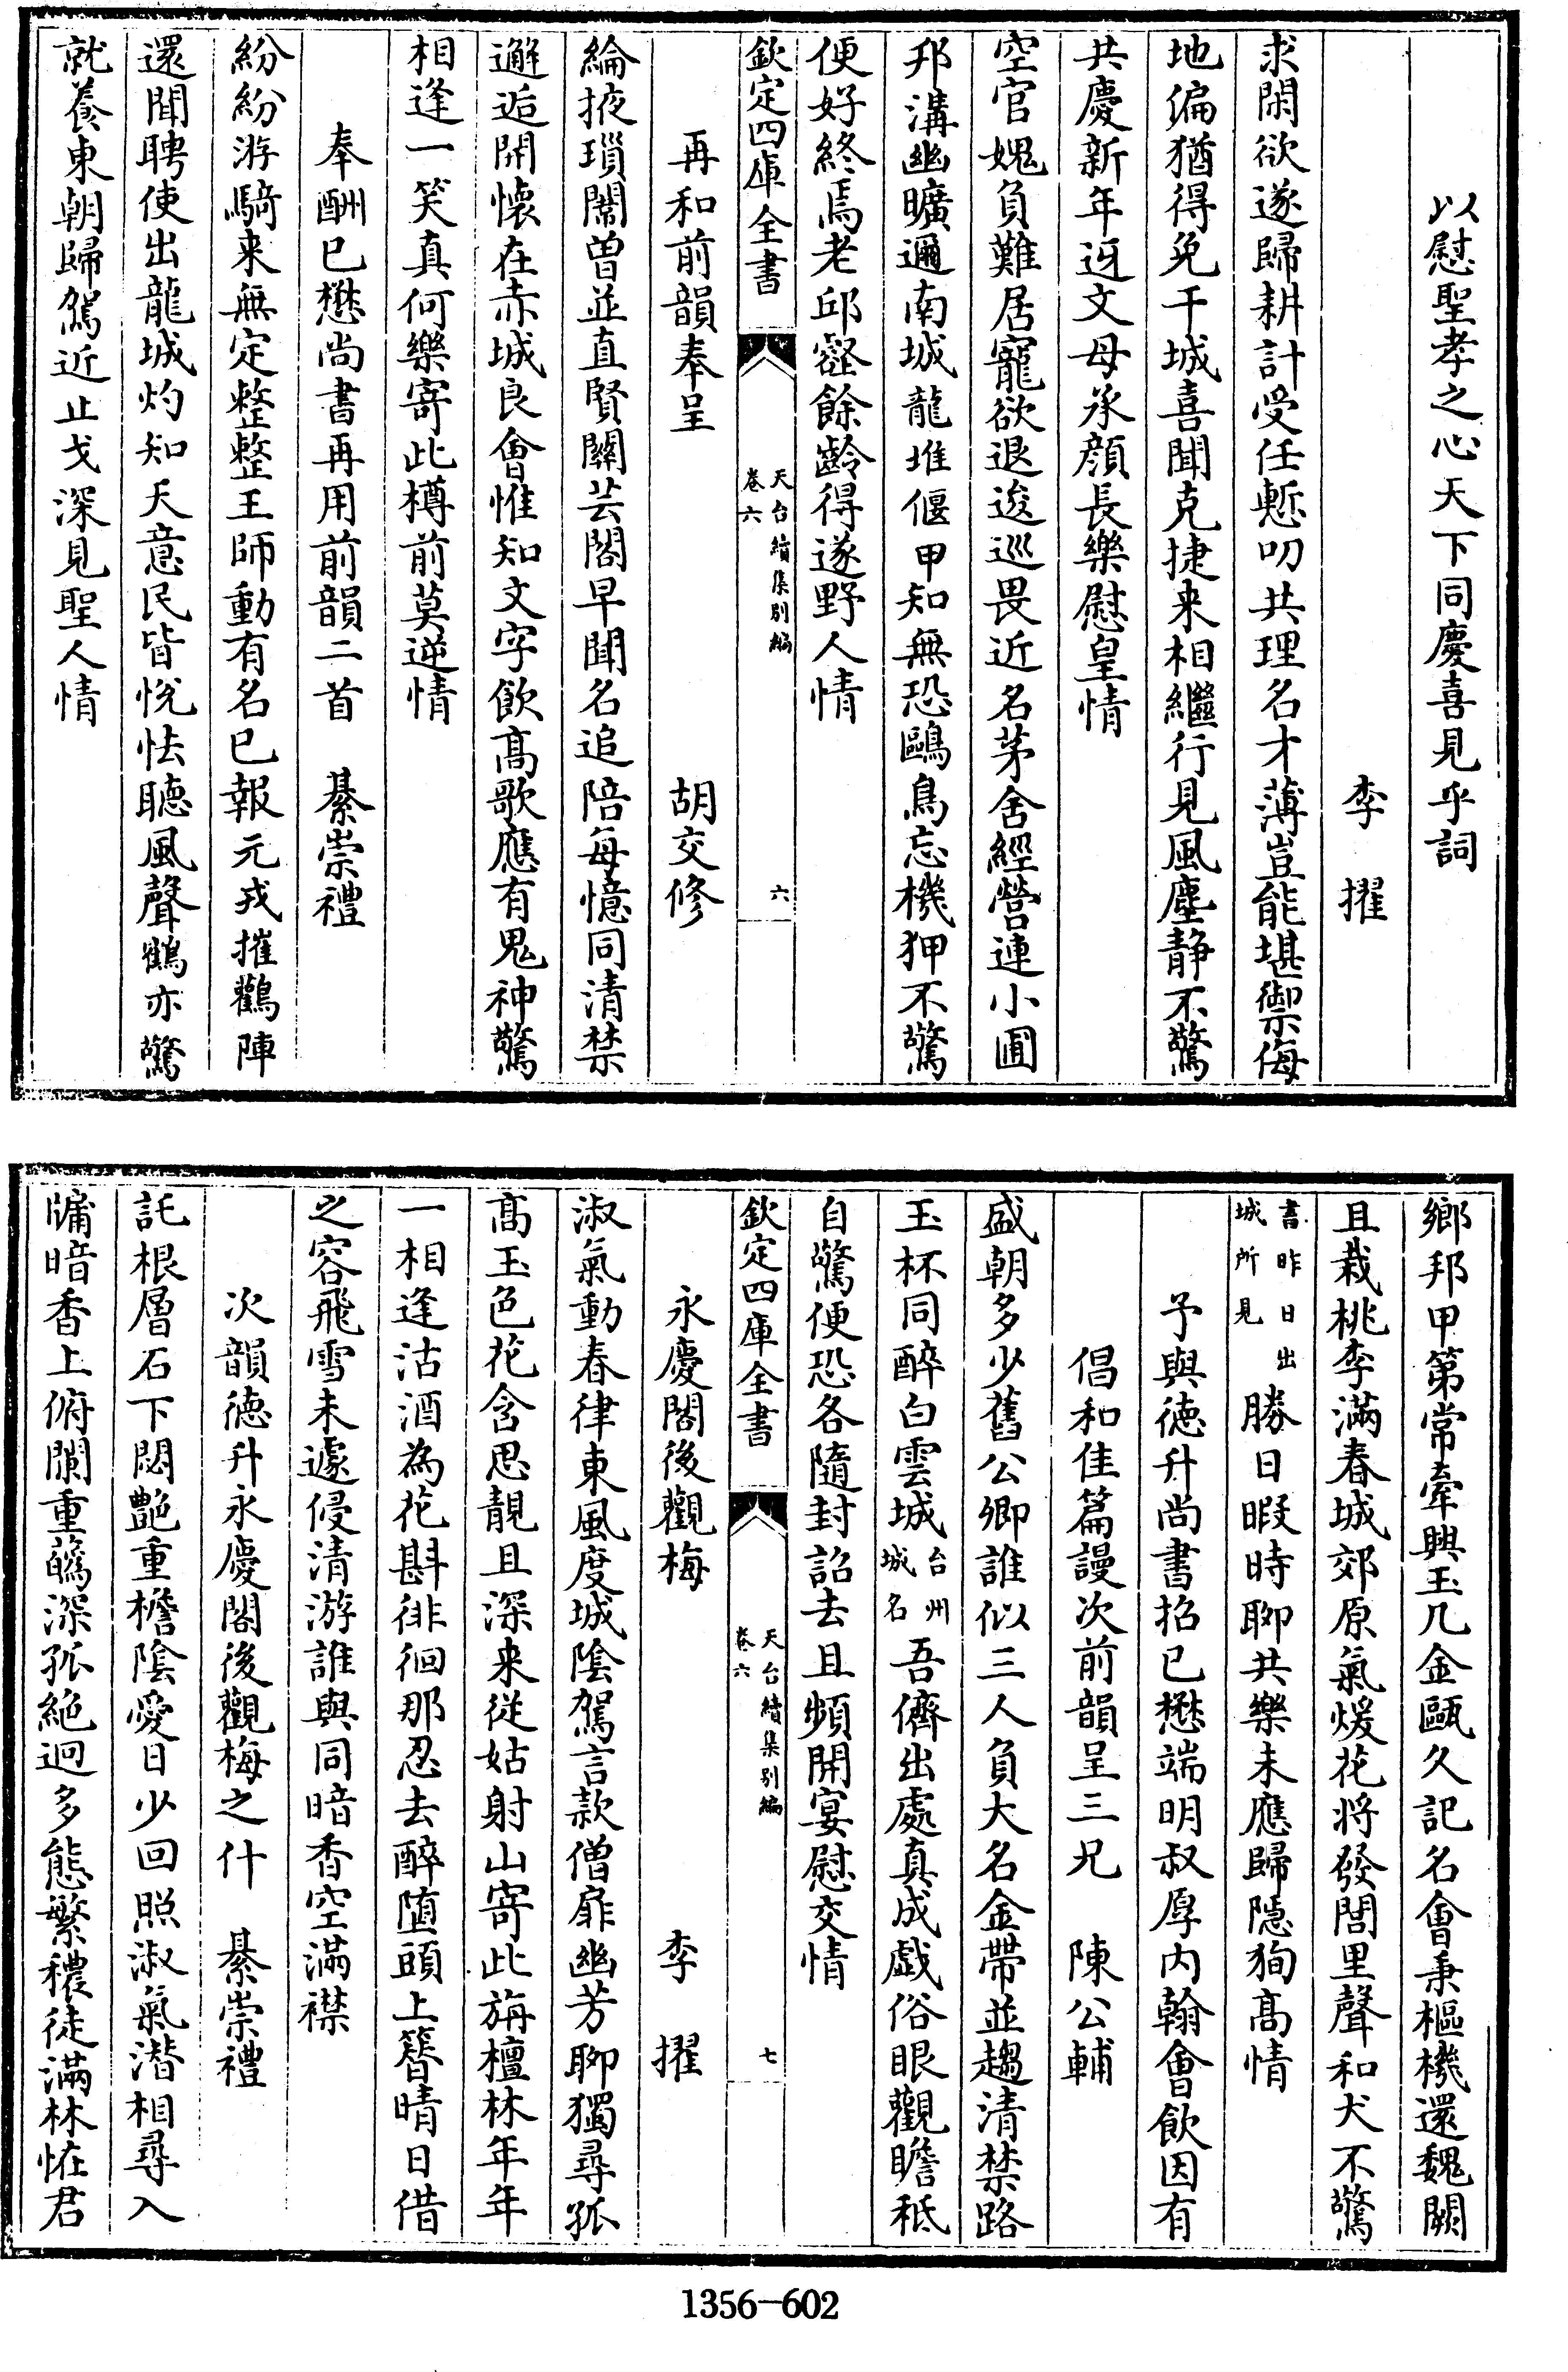 以慰聖孝之心天下同慶喜見乎詞
李擢
求閑欲遂歸耕計受任慙叨共理名才薄豈能堪禦侮
地偏猶得免干城喜聞克捷来相繼行見風塵静不驚
共慶新年迓文母承顔長樂慰皇情
空官媿負難居寵欲退逡巡畏近名茅舍經營連小圃
邦溝幽曠邇南城龍堆偃甲知無恐鷗鳥忘機狎不驚
便好終焉老邱壑餘齡得遂野人情
欽定四庫全書
天台續集别編
卷六
六
再和前韻奉呈 胡交修
綸掖瑣闈曽並直賢關芸閣早聞名追陪每憶同清禁
邂逅開懐在赤城良會惟知文字飲髙歌應有鬼神驚
相逢一笑真何樂寄此樽前莫逆情
奉酬已懋尚書再用前韻二首 綦崇禮
紛紛游騎来無定整整王師動有名已報元戎摧鸛陣
還聞聘使出龍城灼知天意民皆悅怯聽風聲鶴亦驚
就養東朝歸駕近止戈深見聖人情
鄉邦甲第常牽興玉几金甌久記名會秉樞機還魏闕
且栽桃李滿春城郊原氣煖花将發閭里聲和犬不驚
書昨日出
城所見
勝日暇時聊共樂未應歸隠狥髙情
予與徳升尚書招已懋端明叔厚内翰會飲因有
倡和佳篇謾次前韻呈三兄 陳公輔
盛朝多少舊公卿誰似三人負大名金帶並趨清禁路
玉杯同醉白雲城
台州
城名
吾儕出處真成戱俗眼觀瞻秪
自驚便恐各隨封詔去且頻開宴慰交情
欽定四庫全書
天台續集别編
卷六
七
永慶閣後觀梅 李擢
淑氣動春律東風度城陰駕言款僧扉幽芳聊獨尋孤
髙玉色花含思靚且深来従姑射山寄此旃檀林年年
一相逢沽酒為花斟徘徊那忍去醉堕頭上簪晴日借
之容飛雪未遽侵清游誰與同暗香空滿襟
次韻徳升永慶閣後觀梅之什 綦崇禮
託根層石下閟艶重檐陰愛日少回照淑氣潛相尋入
牖暗香上俯闌重蘤深孤絶迥多態繁穠徒滿林恠君
1356-602